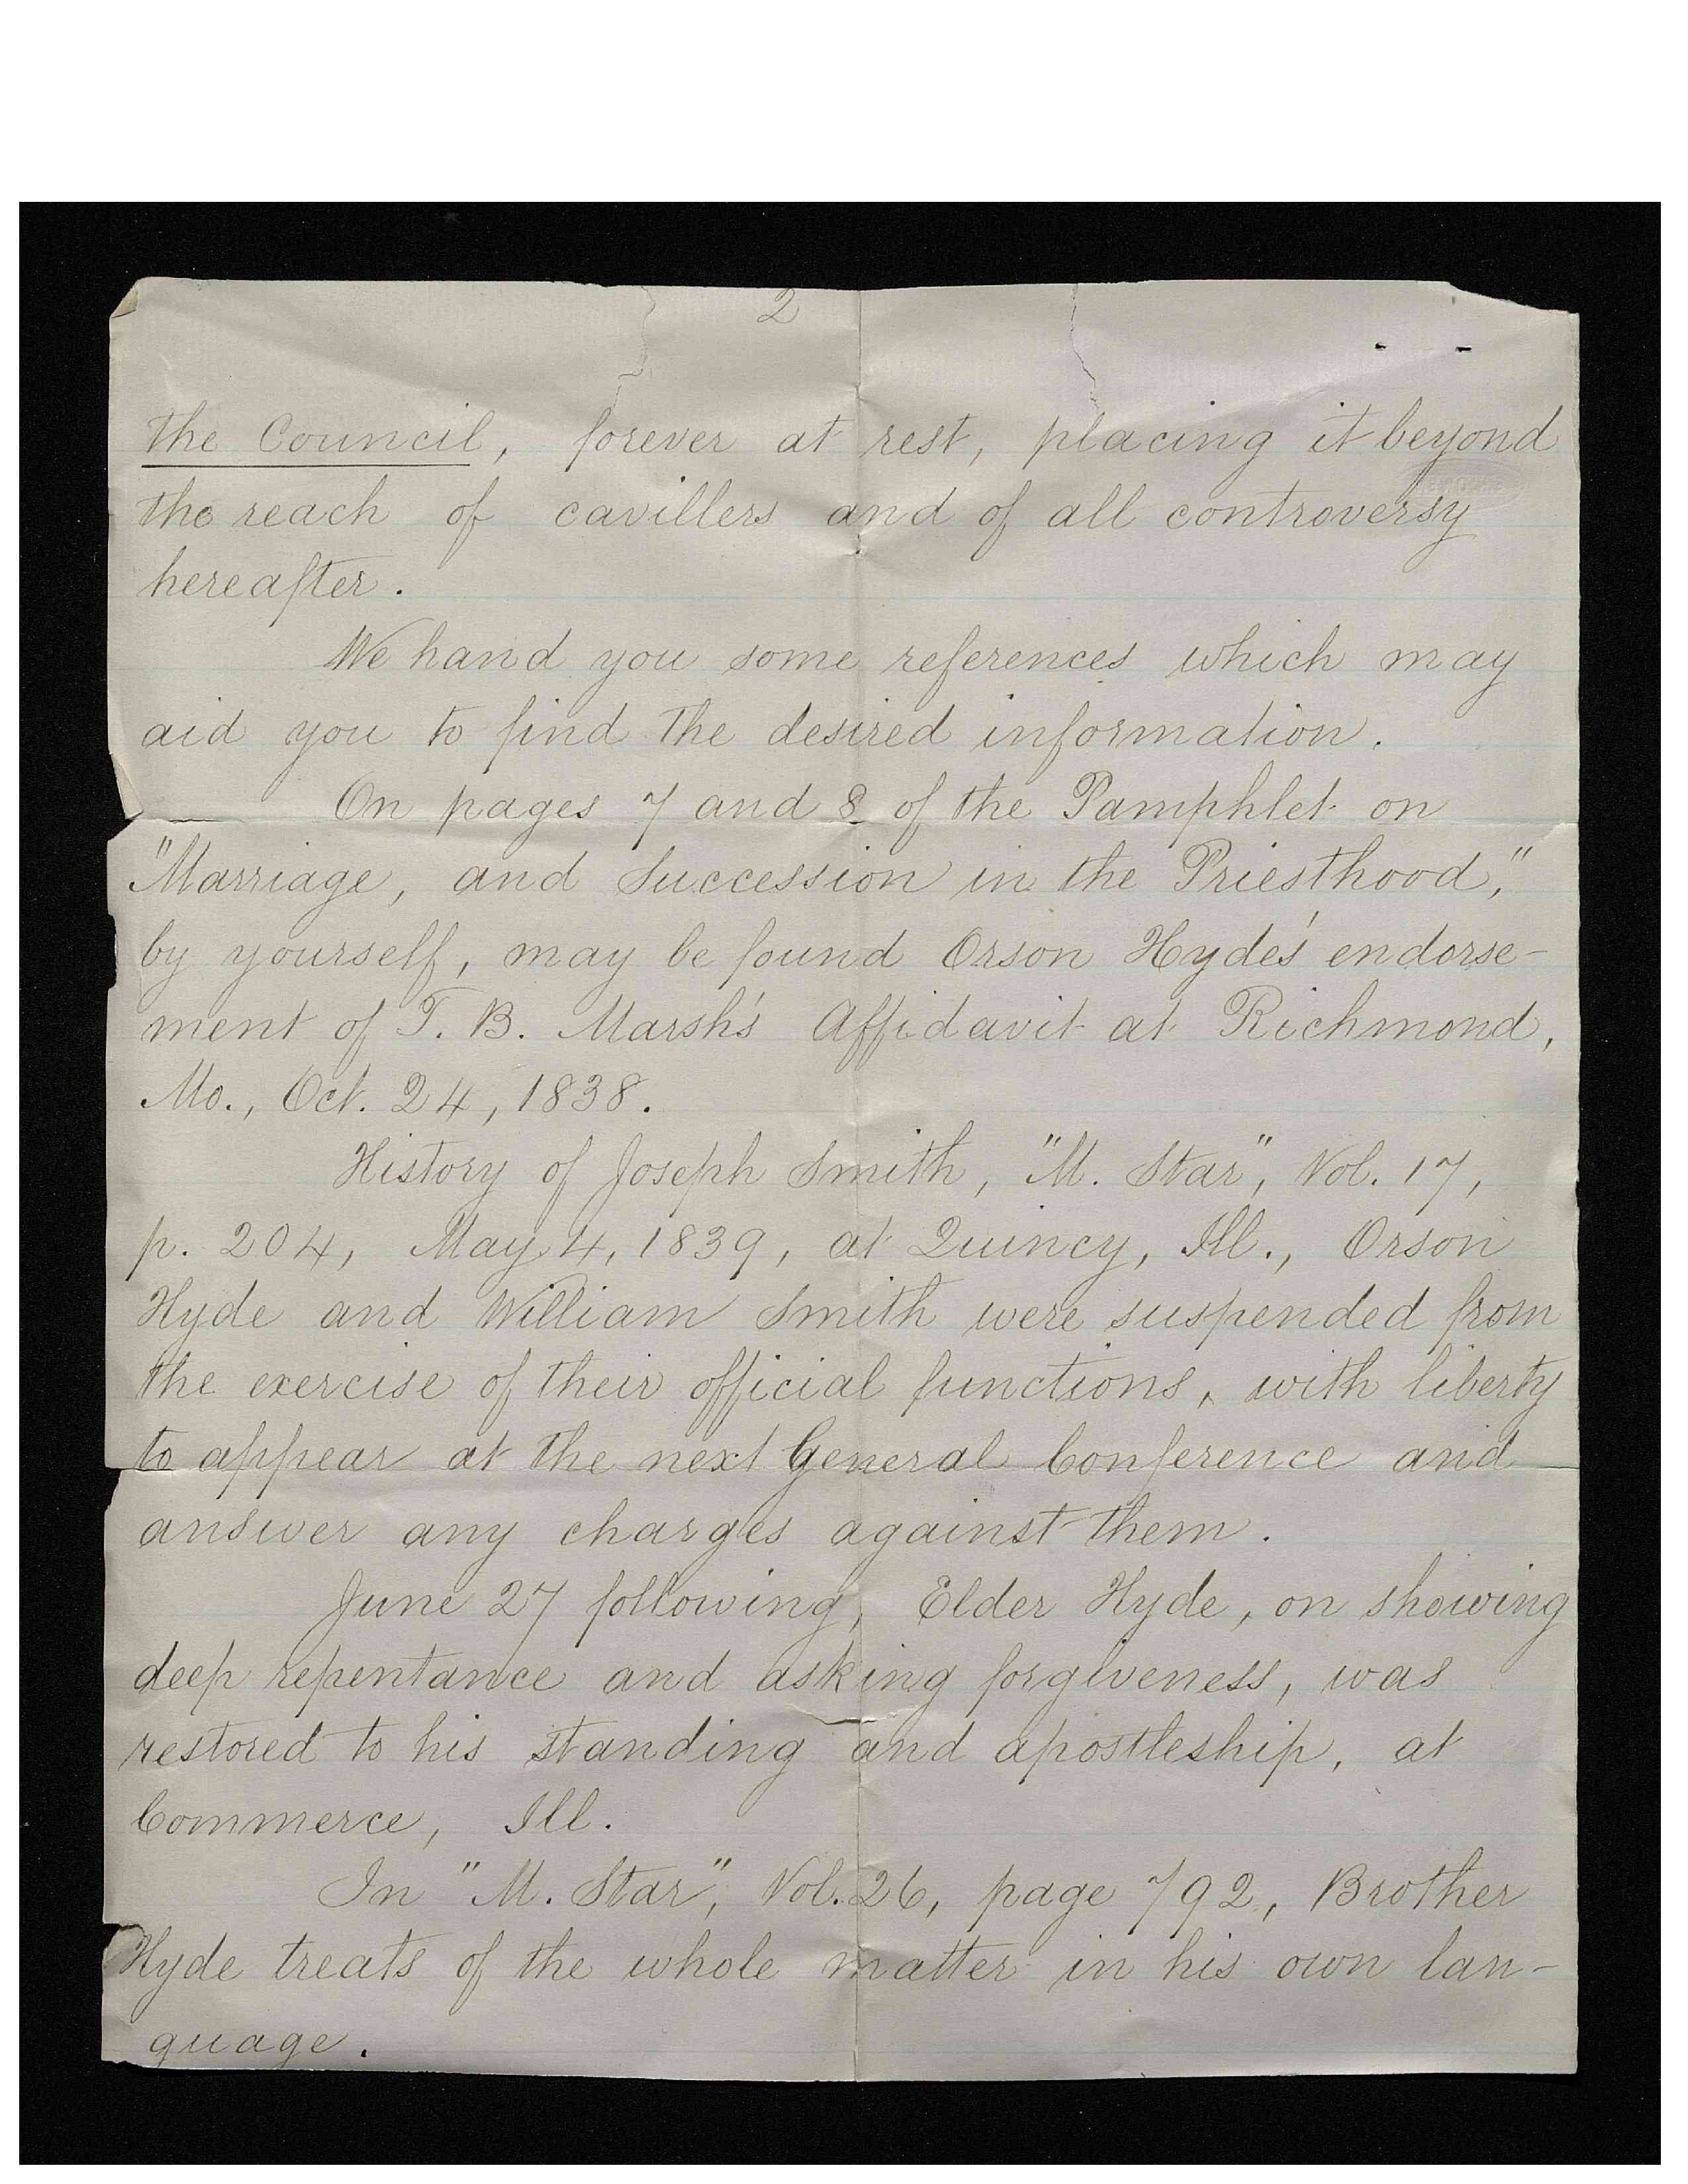 2
the Council, forever at rest, placing it beyond
the reach of cavillers and of all controversy
hereafter.
We hand you some references which may
aid you to find the desired information.
On pages 7 and 8 of the Pamphlet on
"Marriage, and Succession in the Priesthood,"
by yourself, may be found Orson Hyde's endorse-
ment of T. B. Marsh's Affidavit at Richmond,
Mo., Oct. 24, 1838.
History of Joseph Smith, "M. Star", Vol. 17,
p. 204, May 4, 1839, at Quincy, Ill., Orson
Hyde and William Smith were suspended from
the exercise of their official functions, with liberty
to appear at the next General Conference and
answer any charges against them.
June 27 following, Elder Hyde, on showing
deep repentance and asking forgiveness, was
restored to his standing and apostleship, at
Commerce, Ill.
In "M. Star", Vol. 26, page 792, Brother
Hyde treats of the whole matter in his own lan-
guage.